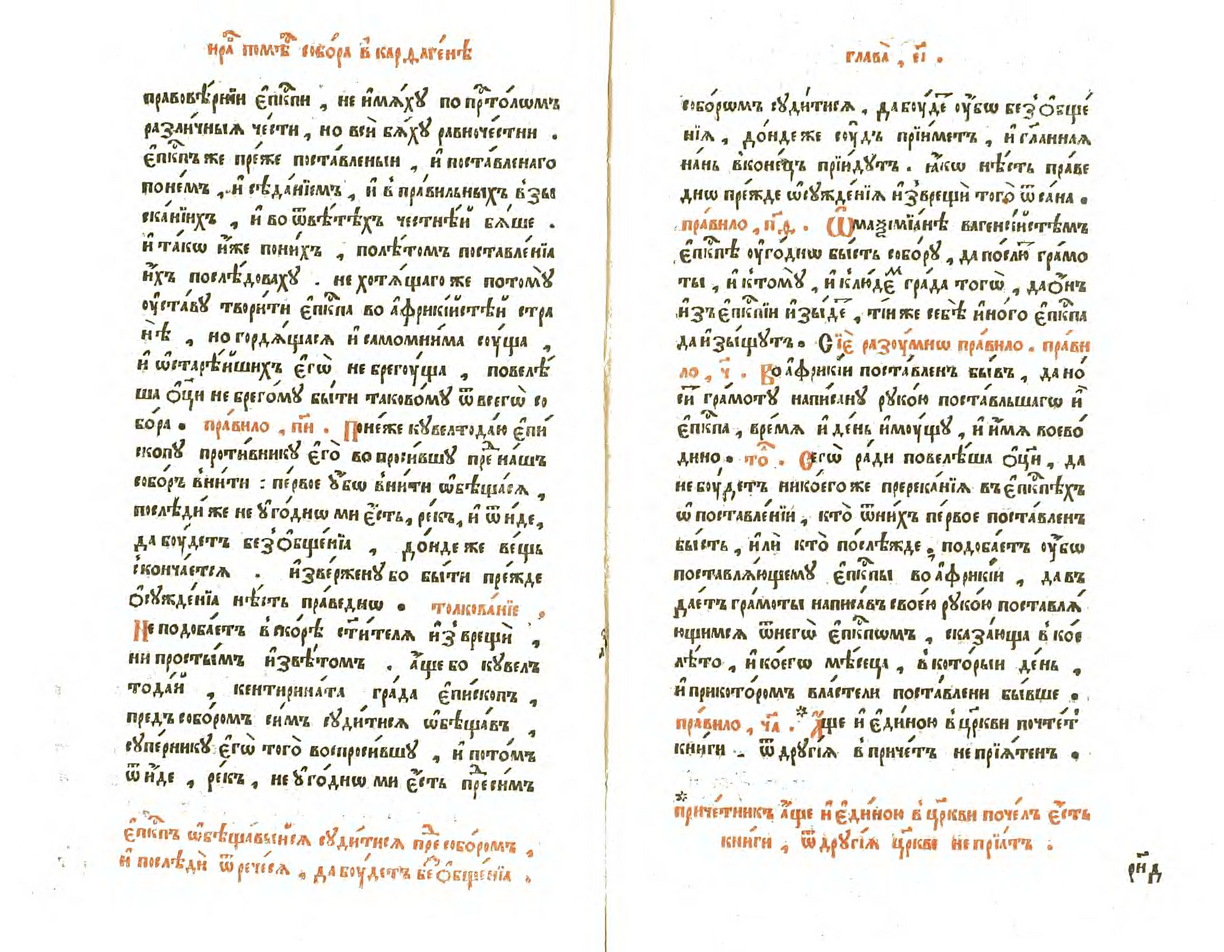 пра́ пом̾ѣ собо́ра в̾ карѳаге́нѣ
правовѣ́рнїи є҆пⷭ҇кпи , не и҆мѧ́хꙋ по прⷭ҇то́лѡмъ
разли́чныѧ че́сти , но всѝ бѧ́хꙋ равноче́стни .
є҆пⷭ҇кпъ же пре́же поста́вленыи , и҆ поста́вленаго
по не́мъ , и҆ сѣда́нїемъ , и҆ в̾ пра́вильныхъ в̾зы
ска́нїихъ , и҆ во ѿвѣ́тѣхъ честнѣ́и бѧ́ше .
и҆ та́кѡ и҆́же по ни́хъ , по лѣ́томъ поставле́нїа
и҆́хъ послѣ́довахꙋ . не хотѧ́щаго же по томꙋ̀
оу҆ста́вꙋ твори́ти є҆пⷭ҇кпа во а҆фрикі́йстѣй стра
нѣ̀ , но гордѧ́щасѧ и҆ самомни́ма сꙋ́ща ,
и҆ ѡ҆ старѣ́йшихъ є҆гѡ̀ не брегꙋ́ща , повелѣ́
ша ѻ҆ц҃и не брего́мꙋ бы́ти таково́мꙋ ѿ всегѡ̀ со
бо́ра . пра́вило , пи҃ . Поне́же кꙋвелтода́ю є҆пи́
скопꙋ проти́вникꙋ є҆гѡ̀ вопроси́вшꙋ пред̾ на́шъ
собо́ръ вни́ти : пе́рвое ᲂу҆́бѡ вни́ти ѡ҆бѣща́сѧ ,
послѣди́ же не ᲂу҆го́днѡ ми є҆́сть , ре́къ , и҆ ѿи́де ,
да бꙋ́детъ без̾ ѻ҆бще́нїа , до́нде же ве́щь
сконча́етсѧ . и҆зве́рженꙋ бо бы́ти пре́жде
ѻ҆сꙋжде́нїа нѣ́сть пра́веднѡ . толкова́нїе .
Не подоба́етъ в̾ско́рѣ ст҃и́телѧ и҆зврещѝ ,
ни просты́мъ и҆звѣ́томъ . а҆́ще бо кꙋвел
тода́й , кентирина́та гра́да є҆пи́скопъ ,
предъ собо́ромъ си́мъ сꙋди́тисѧ ѡ҆бѣща́въ ,
сꙋпе́рникꙋ є҆гѡ̀ того̀ воспроси́вшꙋ , и҆ пото́мъ
ѿи́де , ре́къ , не ᲂу҆го́днѡ ми є҆́сть пред̾ си́мъ
є҆пⷭ҇кпъ ѡ҆бѣща́выйсѧ сꙋди́тисѧ пред̾ собо́ромъ ,
и҆ послѣди́ ѿре́чесѧ , да бꙋ́детъ без̾ ѻ҆бще́нїа .
глава̀ , є҃і .
собо́рѡмъ сꙋди́тисѧ , да бꙋ́де ᲂу҆́бѡ без̾ ѻ҆бще́
нїѧ , до́нде же сꙋ́дъ прїи́метъ , и҆ гл҃анная
на́нь в̾коне́цъ прїи́дꙋтъ . ꙗ҆́кѡ нѣ́сть пра́ве
днѡ пре́жде ѡ҆сꙋжде́нїѧ и҆зврещѝ того̀ ѿ са́на .
пра́вило , п҃ѳ . Ѡ҆ маѯимїа́нѣ вагенсі́йстѣмъ
є҆пⷭ҇кпѣ оу҆го́днѡ бы́сть собо́рꙋ , да по́слю грамо
ты̀ , и҆ к̾ томꙋ̀ , и҆ к̾ лю́демъ гра́да тогѡ̀ , да ѻ҆́нъ
и҆зъ є҆пⷭ҇кпїи и҆зы́де , ті́и же себѣ̀ и҆но́го є҆пⷭ҇кпа
да и҆зы́щꙋтъ . Сїѐ разꙋ́мнѡ пра́вило . пра́ви
ло , ч҃ . Во а҆фрикі́и поста́вленъ бы́въ , да но́
ситъ гра́мотꙋ напи́санꙋ рꙋко́ю поста́вльшагѡ и҆̀
є҆пⷭ҇кпа , вре́мѧ и҆ де́нь и҆мꙋ́щꙋ , и҆ и҆́мѧ воево́
дино . то̑ . Сегѡ̀ ра́ди повелѣ́ша ѻ҆ц҃и , да
не бꙋ́детъ нико́его же пререка́нїѧ въ є҆пⷭ҇кпѣхъ
ѡ҆ поставле́нїи , кто̀ ѿ ни́хъ пе́рвое поста́вленъ
бы́сть , и҆лѝ кто̀ послѣ́жде , подоба́етъ ᲂу҆́бѡ
поставлѧ́ющемꙋ є҆пⷭ҇кпы во а҆фрикі́и , да въ
дае́тъ гра́моты написа́въ свое́ю рꙋко́ю поставлѧ́
ющимсѧ ѿ негѡ̀ є҆пⷭ҇кпѡмъ , сказа́юща в̾ ко́е
лѣ́то , и҆ ко́егѡ мѣ́сеца , в̾ кото́рыи де́нь ,
и҆ при кото́ромъ вла́стели поста́влени бы́вше .
пра́вило , ч҃а . * А҆́ще и҆ є҆ди́ною в̾ цр҃кви почте́тъ
кни́ги . ѿ дрꙋгі́ѧ в̾ при́четъ не прїѧ́тенъ .
* приче́тникъ а҆́ще и҆ є҆ди́ною в̾ цр҃кви поче́лъ є҆́сть
кни́ги , ѿ дрꙋгі́ѧ цр҃кве не прїѧ́тъ .
рн҃д